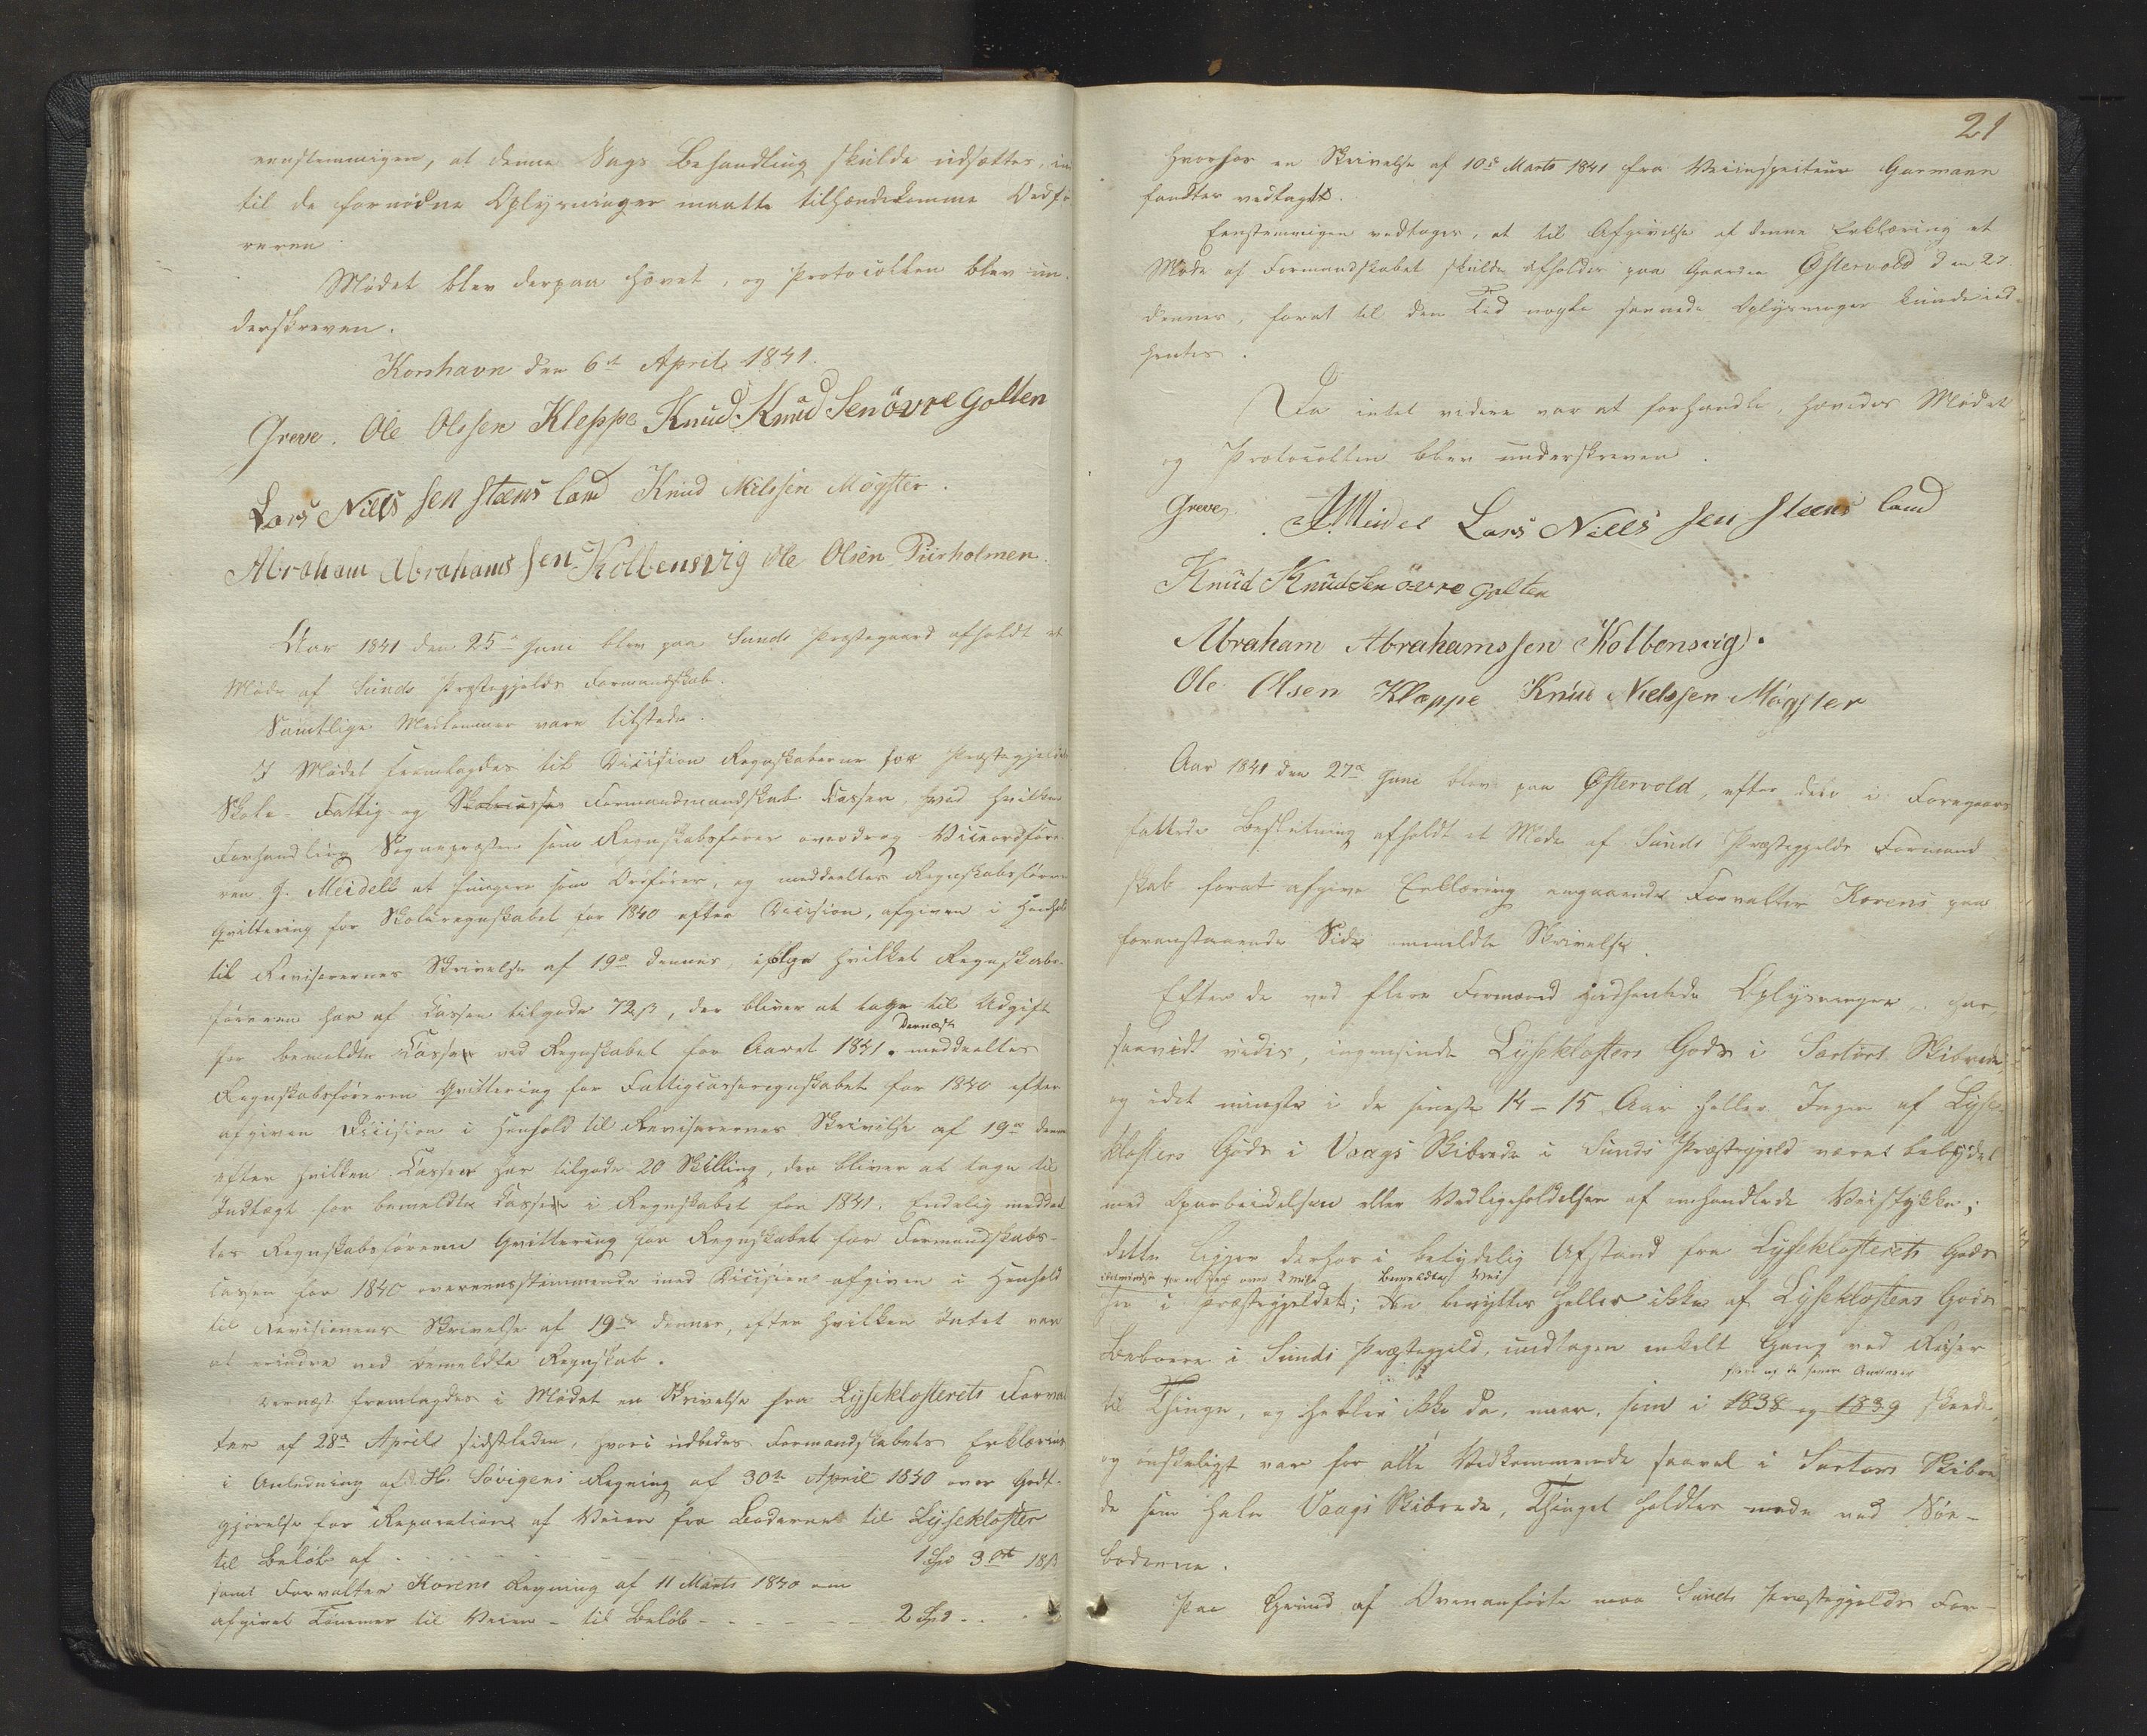 eenstemmigen, at denne Sags Behandling skulde udsættes, in
til de fornødne Oplysninger maatte tilhændekomme Ordfø
reren
Mødet blev derpaa hævet, og Protocollen blev un-
derskreven.
Korshavn den 6te April 1841.
Greve. Ole Olssen Kleppe Knud Knudsen övre golten
Lars Nills sen steens land Knud Nilssen Møgster.
Abraham Abrahams sen Kolbensvig Ole Olsen Purholmen.
Aar 1841 den 25de Juni blev paa Sunds Præstegaard afholdt et
Møde af Sunds Præstegjelds Formandskab.
Samtlige Medlemmer vare tilstede.
I Mødet fremlagdes til Decision Regnskaberne for Præstegjeldets
Skole- Fattig- og Skolecassen Formandmandskab Cassen, ved hvilken
Forhandling Sognepræsten som Regnskabsfører overdrog Viceordføre-
ren J. Meidell at fungere som Ordfører, og meddeeltes Regnskabsføreren
Qvittering for Skoleregnskabet for 1840 efter Decision, afgiven i Henhold
til Revisorernes Skrivelse af 19de dennes, ifølge hvilket Regnskabs-
føreren har af Cassen tilgode 72 ß, der bliver at tage til Udgift
for bemeldte Casse ved Regnskabet for Aaret 1841. Dernæst meddeeltes
Regnskabsføreren Qvittering for Fattigcasseregnskabet for 1840 efter
afgiven Decision i Henhold til Revisorernes Skrivelse af 19de dennes
efter hvilken Cassen har tilgode 20 Skilling, der bliver at tage til
Indtægt for bemeldte Casse i Regnskabet for 1841. Endelig meddeel
tes Regnskabsføreren Qvittering for Regnskabet for Formandskabs-
cassen for 1840 overeensstemmende med Decision afgiven i Henhold
til Revisionens Skrivelse af 19de dennes, efter hvilken Intet var
at erindre ved bemeldte Regnskab.
Dernæst fremlagdes i Mødet en Skrivelse fra Lyseklosterets Forval
ter af 28de April sidstleden, hvori udbedes Formandskabets Erklæring
i Anledning af H. Søvigens Regning af 30te April 1840 over Godt-
gjørelse for Reparation af Veien fra Boderne til Lysekloster
til Beløb af 1 Spd 3 ort 18 ß
samt Forvalter Korens Regning af 11 Marts 1840 om
afgivet Tømmer til Veien - til Beløb - - - - 2 Spd
21
hvorhos en Skrivelse af 10de Marts 1841 fra Veiinspecteur Garmann
fandtes vedlagt.
Eenstemmigen vedtoges, at til Afgivelse af denne Erklæring et
Møde af Formandskabet skulde afholdes paa Gaarden Østervold den 27
dennes, forat til den Tid nogle fornødne Oplysninger kunde ind-
hentes.
Da intet videre var at forhandle, hævedes Mødet
og Protocollen blev underskreven.
Greve. J. Meidel Lars Nills sen steens land
Knud Knudsen övre golten
Abraham Abrahamssen Kolbensvig.
Ole Olsen Klæppe Knud Nielssen Møgster
Aar 1841 den 27de Juni blev paa Østervold, efter den i Foregaaende
fattede Beslutning afholdt et Møde af Sunds Præstegjelds Formand
skab forat afgive Erklæring angaaende Forvalter Korens paa
foranstaaende Side ommeldte Skrivelse.
Efter de ved flere Formænd indhentede Oplysninger, har,
saavidt vides, ingensinde Lyseklosters Gods i Sartors Skibrede
og idet mindste i de seneste 14-15 Aar heller Ingen af Lyse-
klosters Gods i Vaags Skibrede i Sunds Præstegjeld været bebyrdet
med Oparbeidelsen eller Vedligeholdelsen af omhandlede Veistykke;
dette ligger derhos i betydelig Afstand fra Lyseklosterets Gods
her i Præstegjeldet; bemeldte Vei benyttes heller ikke af Lyseklosters Gods
Beboere i Sunds Præstegjeld, undtagen enkelt Gang ved Reiser
til Thinge, og heller ikke da, naar, som i 1838 og 1839 skeede,
og ønskeligt var for alle Vedkommende saavel i Sartors Skibre
de som hele Vaags Skibrede, Thinget holdtes nede ved Søe-
boderne.
Paa Grund af Ovenanførte maa Sunds Præstegjelds For-